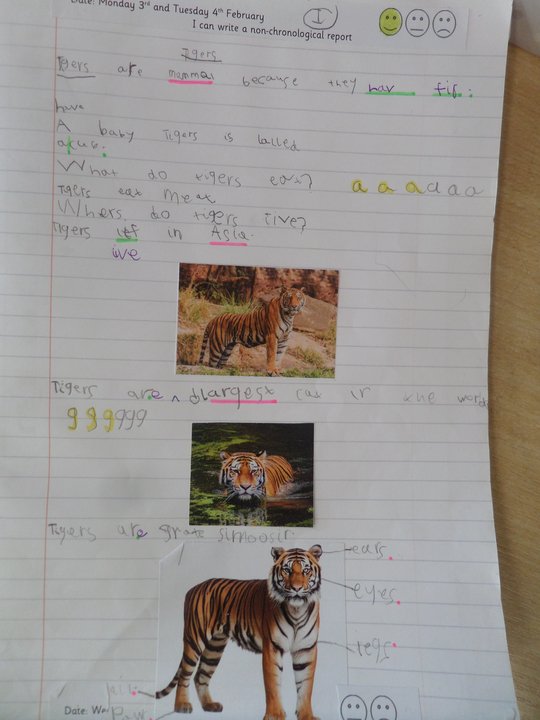 Date: Monday 3rd and Tuesday 4th February
I
I can write a non-chronological report
Tigers
Tigers are mammal because they hav fif.
have
A baby Tigers is called
a cub.
What do tigers eat?
a a a a a a
Tigers eat meat
Whers do tigers live?
Tigers lif in Asia.
ive
Tigers are largest cat in the world
g g g g g g
Tigers are grate
ears.
eyes.
legs.
tail.
paw.
Date: We